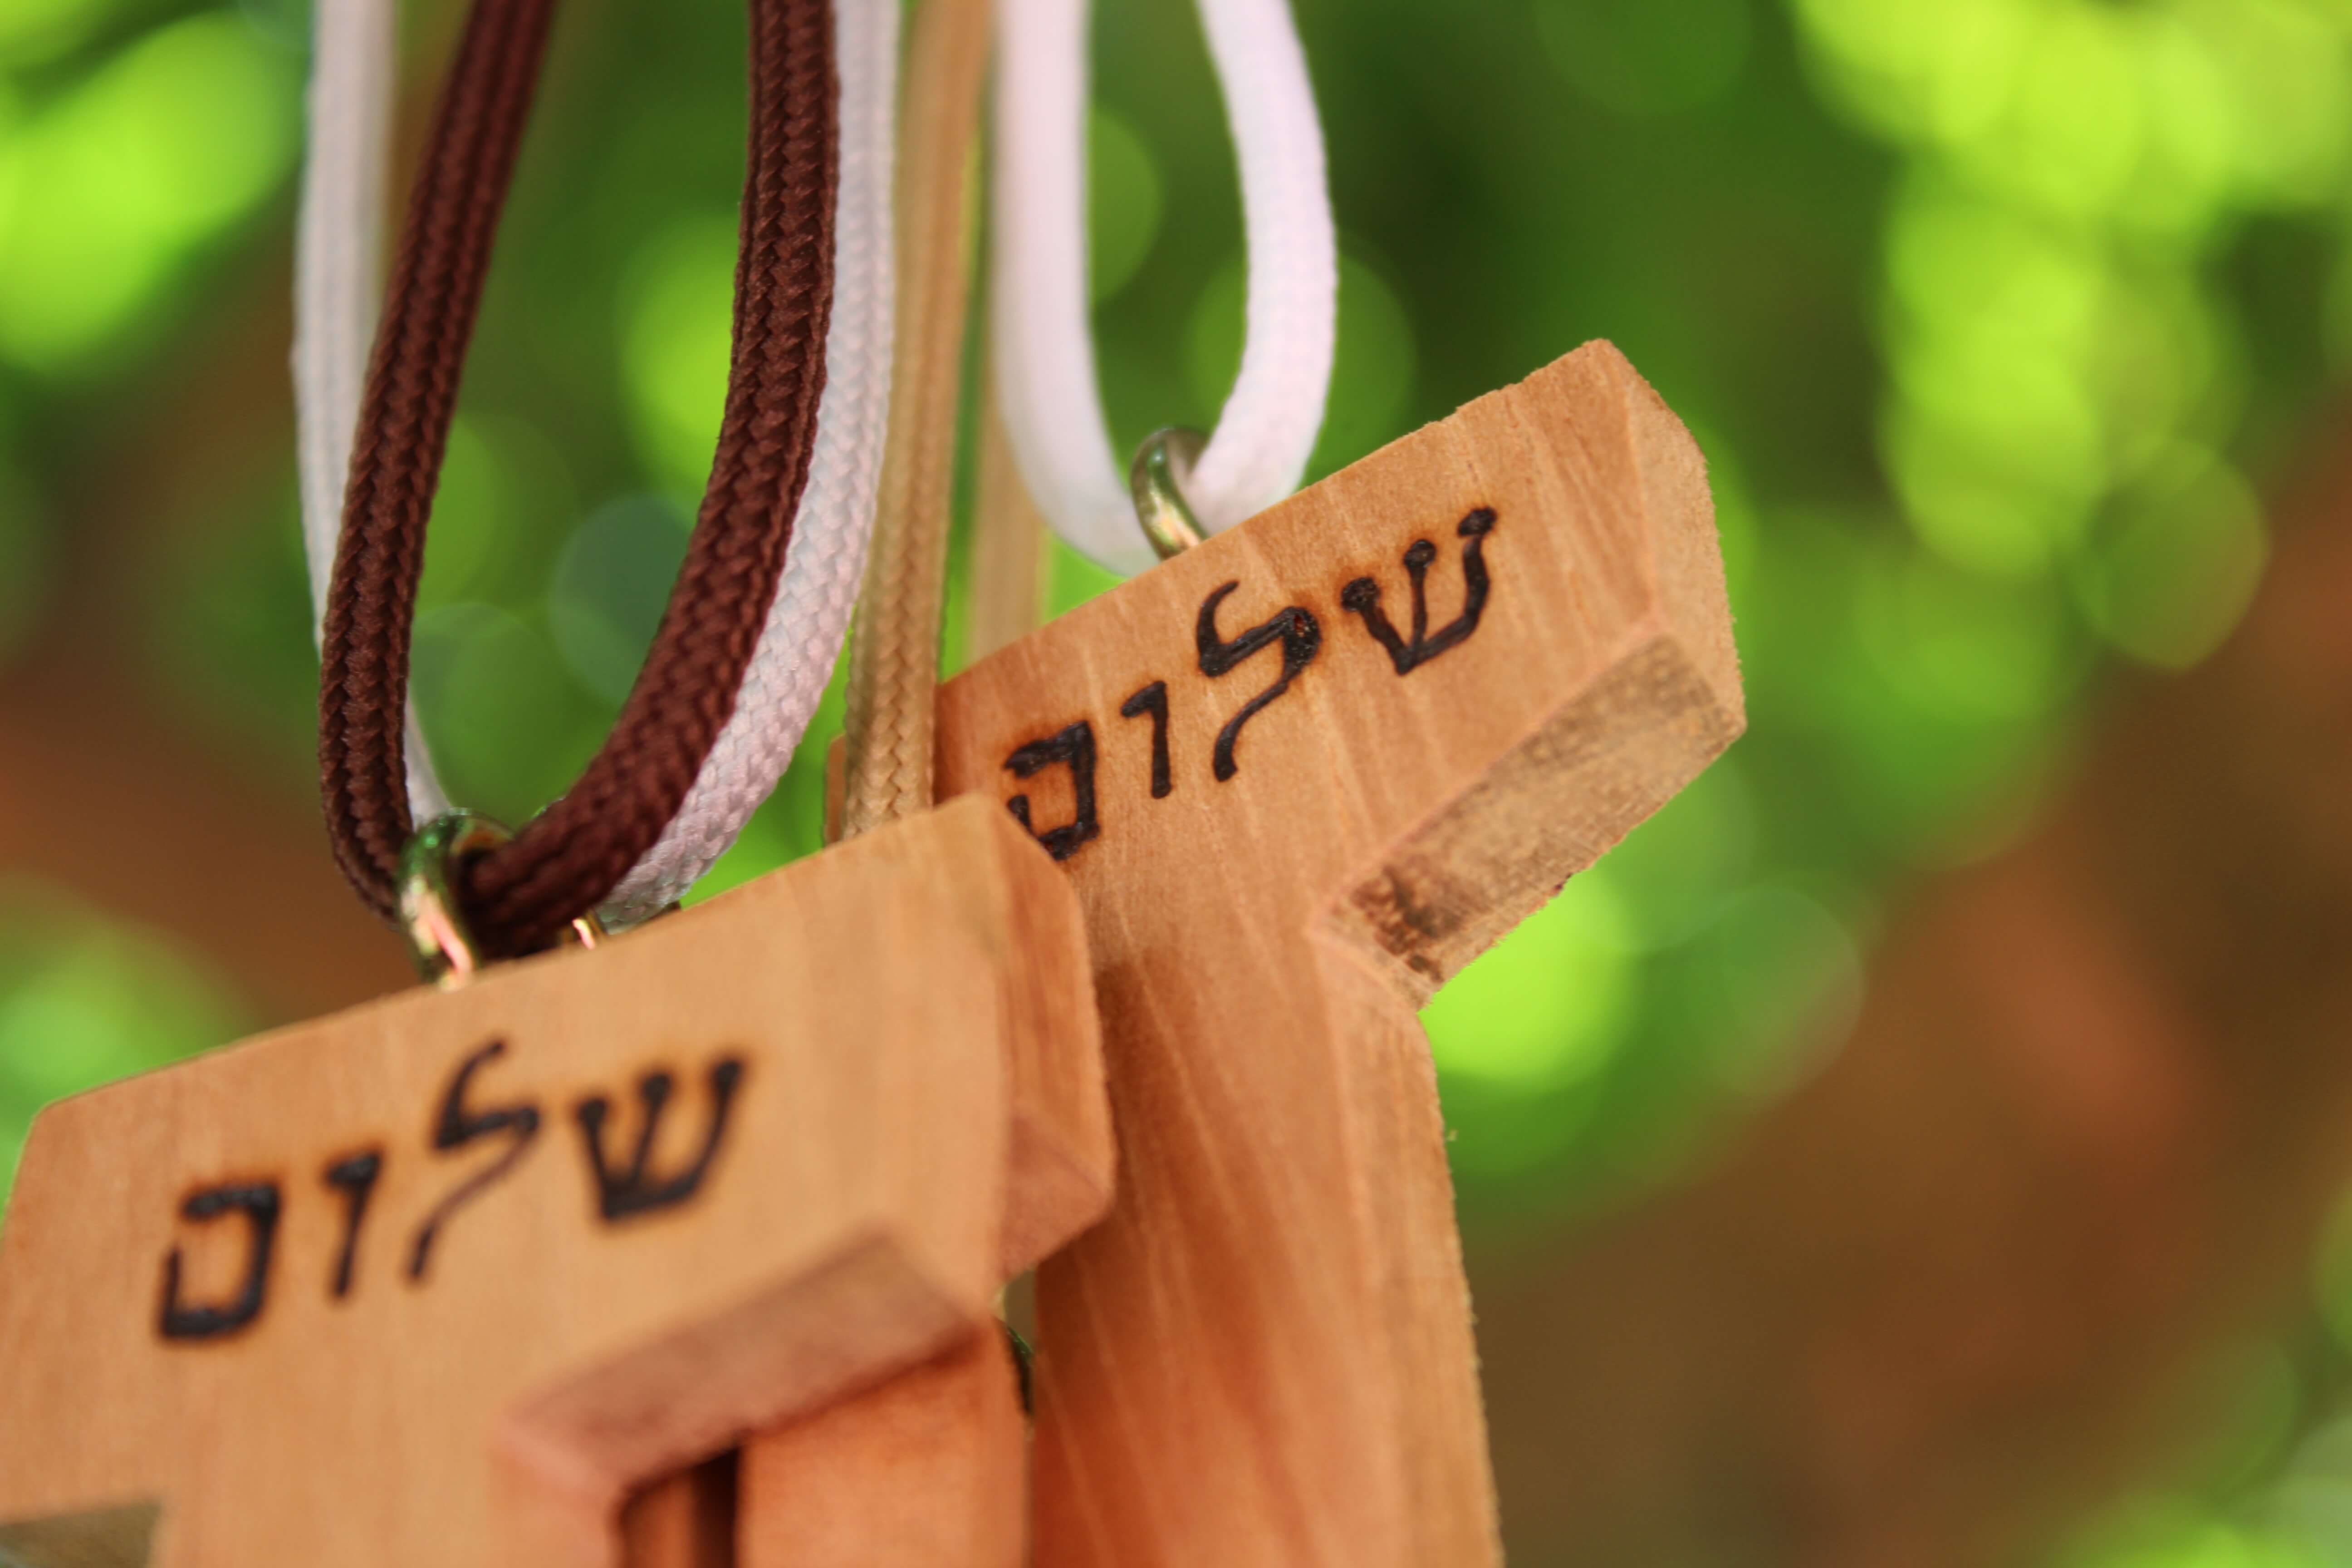 שלום
שלום